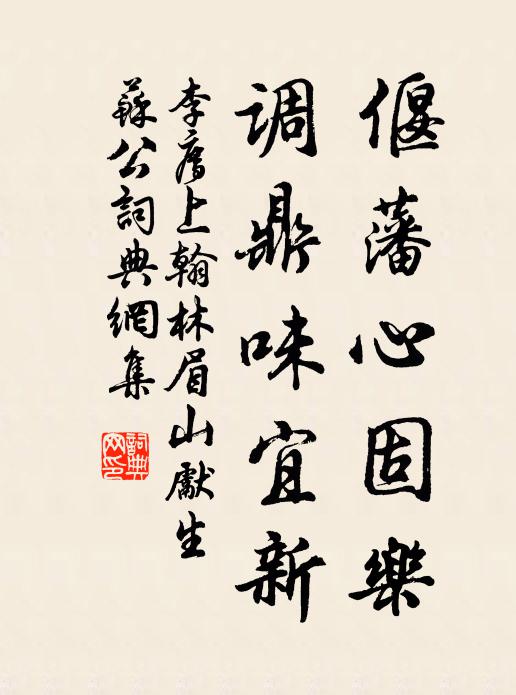 偃藩心固樂
调鼎味宜新
李廌上翰林眉山獻生
蘇公詞典網集
詞典
网印